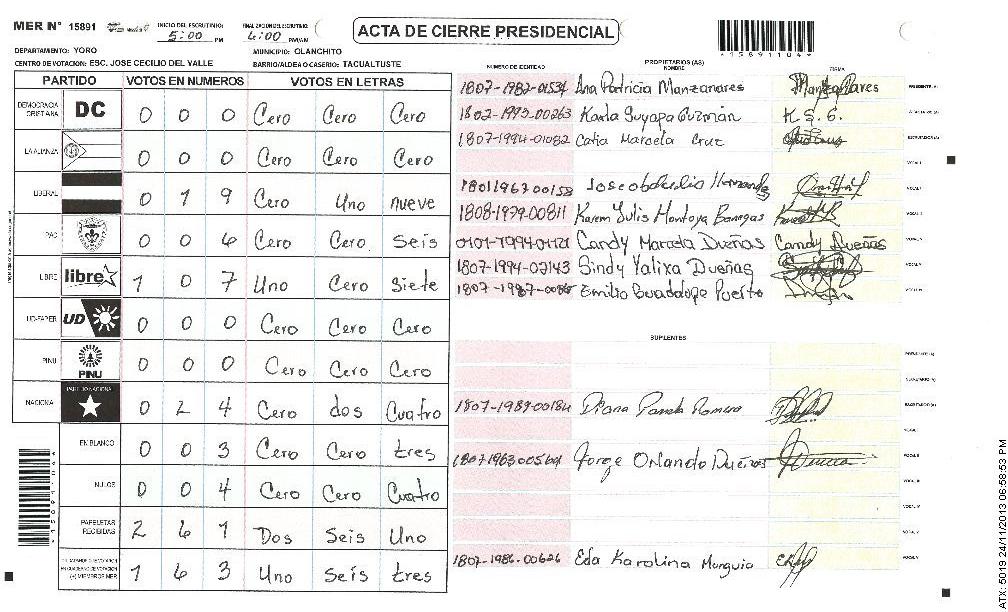 MER N° 15891 INICIO DEL ESCRUTINIO: 5:00 PM FINALIZACION DEL ESCRUTINIO: 6:00 PM/AM
ACTA DE CIERRE PRESIDENCIAL
*15891104*
DEPARTAMENTO: YORO MUNICIPIO: OLANCHITO
CENTRO DE VOTACION: ESC. JOSE CECILIO DEL VALLE BARRIO/ALDEA O CASERIO: TACUALTUSTE
PARTIDO VOTOS EN NUMEROS VOTOS EN LETRAS
DEMOCRACIA CRISTIANA DC 0 0 0 Cero Cero Cero
LA ALIANZA 0 0 0 Cero Cero Cero
LIBERAL 0 1 9 Cero Uno nueve
PAC 0 0 6 Cero Cero Seis
LIBRE libre 1 0 7 Uno Cero Siete
UD-FAPER UD 0 0 0 Cero Cero Cero
PINU PINU 0 0 0 Cero Cero Cero
NACIONAL PARTIDO NACIONAL 0 2 4 Cero dos Cuatro
EN BLANCO 0 0 3 Cero Cero tres
NULOS 0 0 4 Cero Cero Cuatro
PAPELETAS RECIBIDAS 2 6 1 Dos Seis Uno
(+) MIEMBROS MER 1 6 3 Uno Seis tres
NUMERO DE IDENTIDAD PROPIETARIOS (AS) NOMBRE FIRMA
1807-1982-01534 Ana Patricia Manzanares Manzanares PRESIDENTE (A)
1802-1993-00263 Karla Suyapa Guzmán K.S.G.
1807-1994-01082 Catia Marcela Cruz ESCRUTADOR (A)
VOCAL I
1801196700158 Jose obdulio Hernandez
1808-1979-00811 Karem Yulis Montoya Banegas
Candy Marcela Dueñas Candy Dueñas
1807-1994-02143 Sindy Yalixa Dueñas
Emilio Guadalope Puerto
SUPLENTES
PRESIDENTE (A)
SECRETARIO (A)
1807-1989-00184 Diana Romero ESCRUTADOR (A)
Jorge Orlando Dueñas
1807-1986-00626 Eda Karolina Munguia
*15891104*
ATX: 5019 24/11/2013 06:58:53 PM